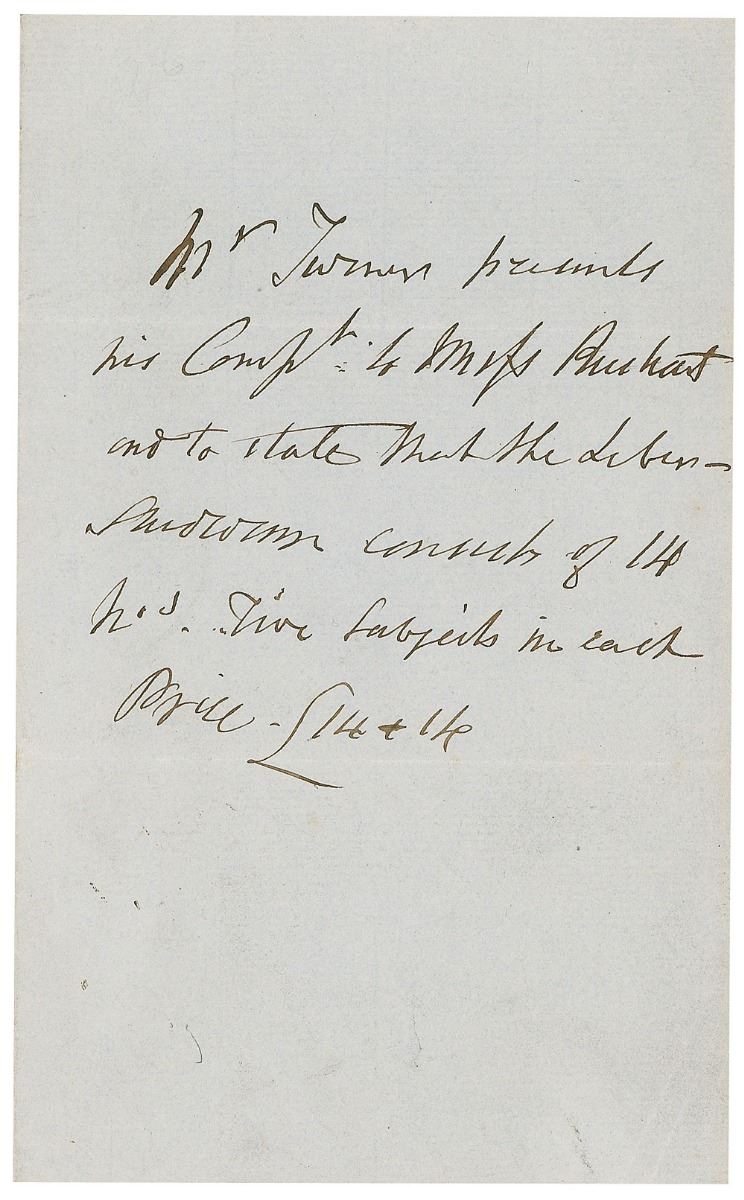 Mr Turner presents
his Compt. to Messs
and to state that the Liber-
Studiorum consists of 14
Nos. Five Subjects in each
Price - £14 + 14